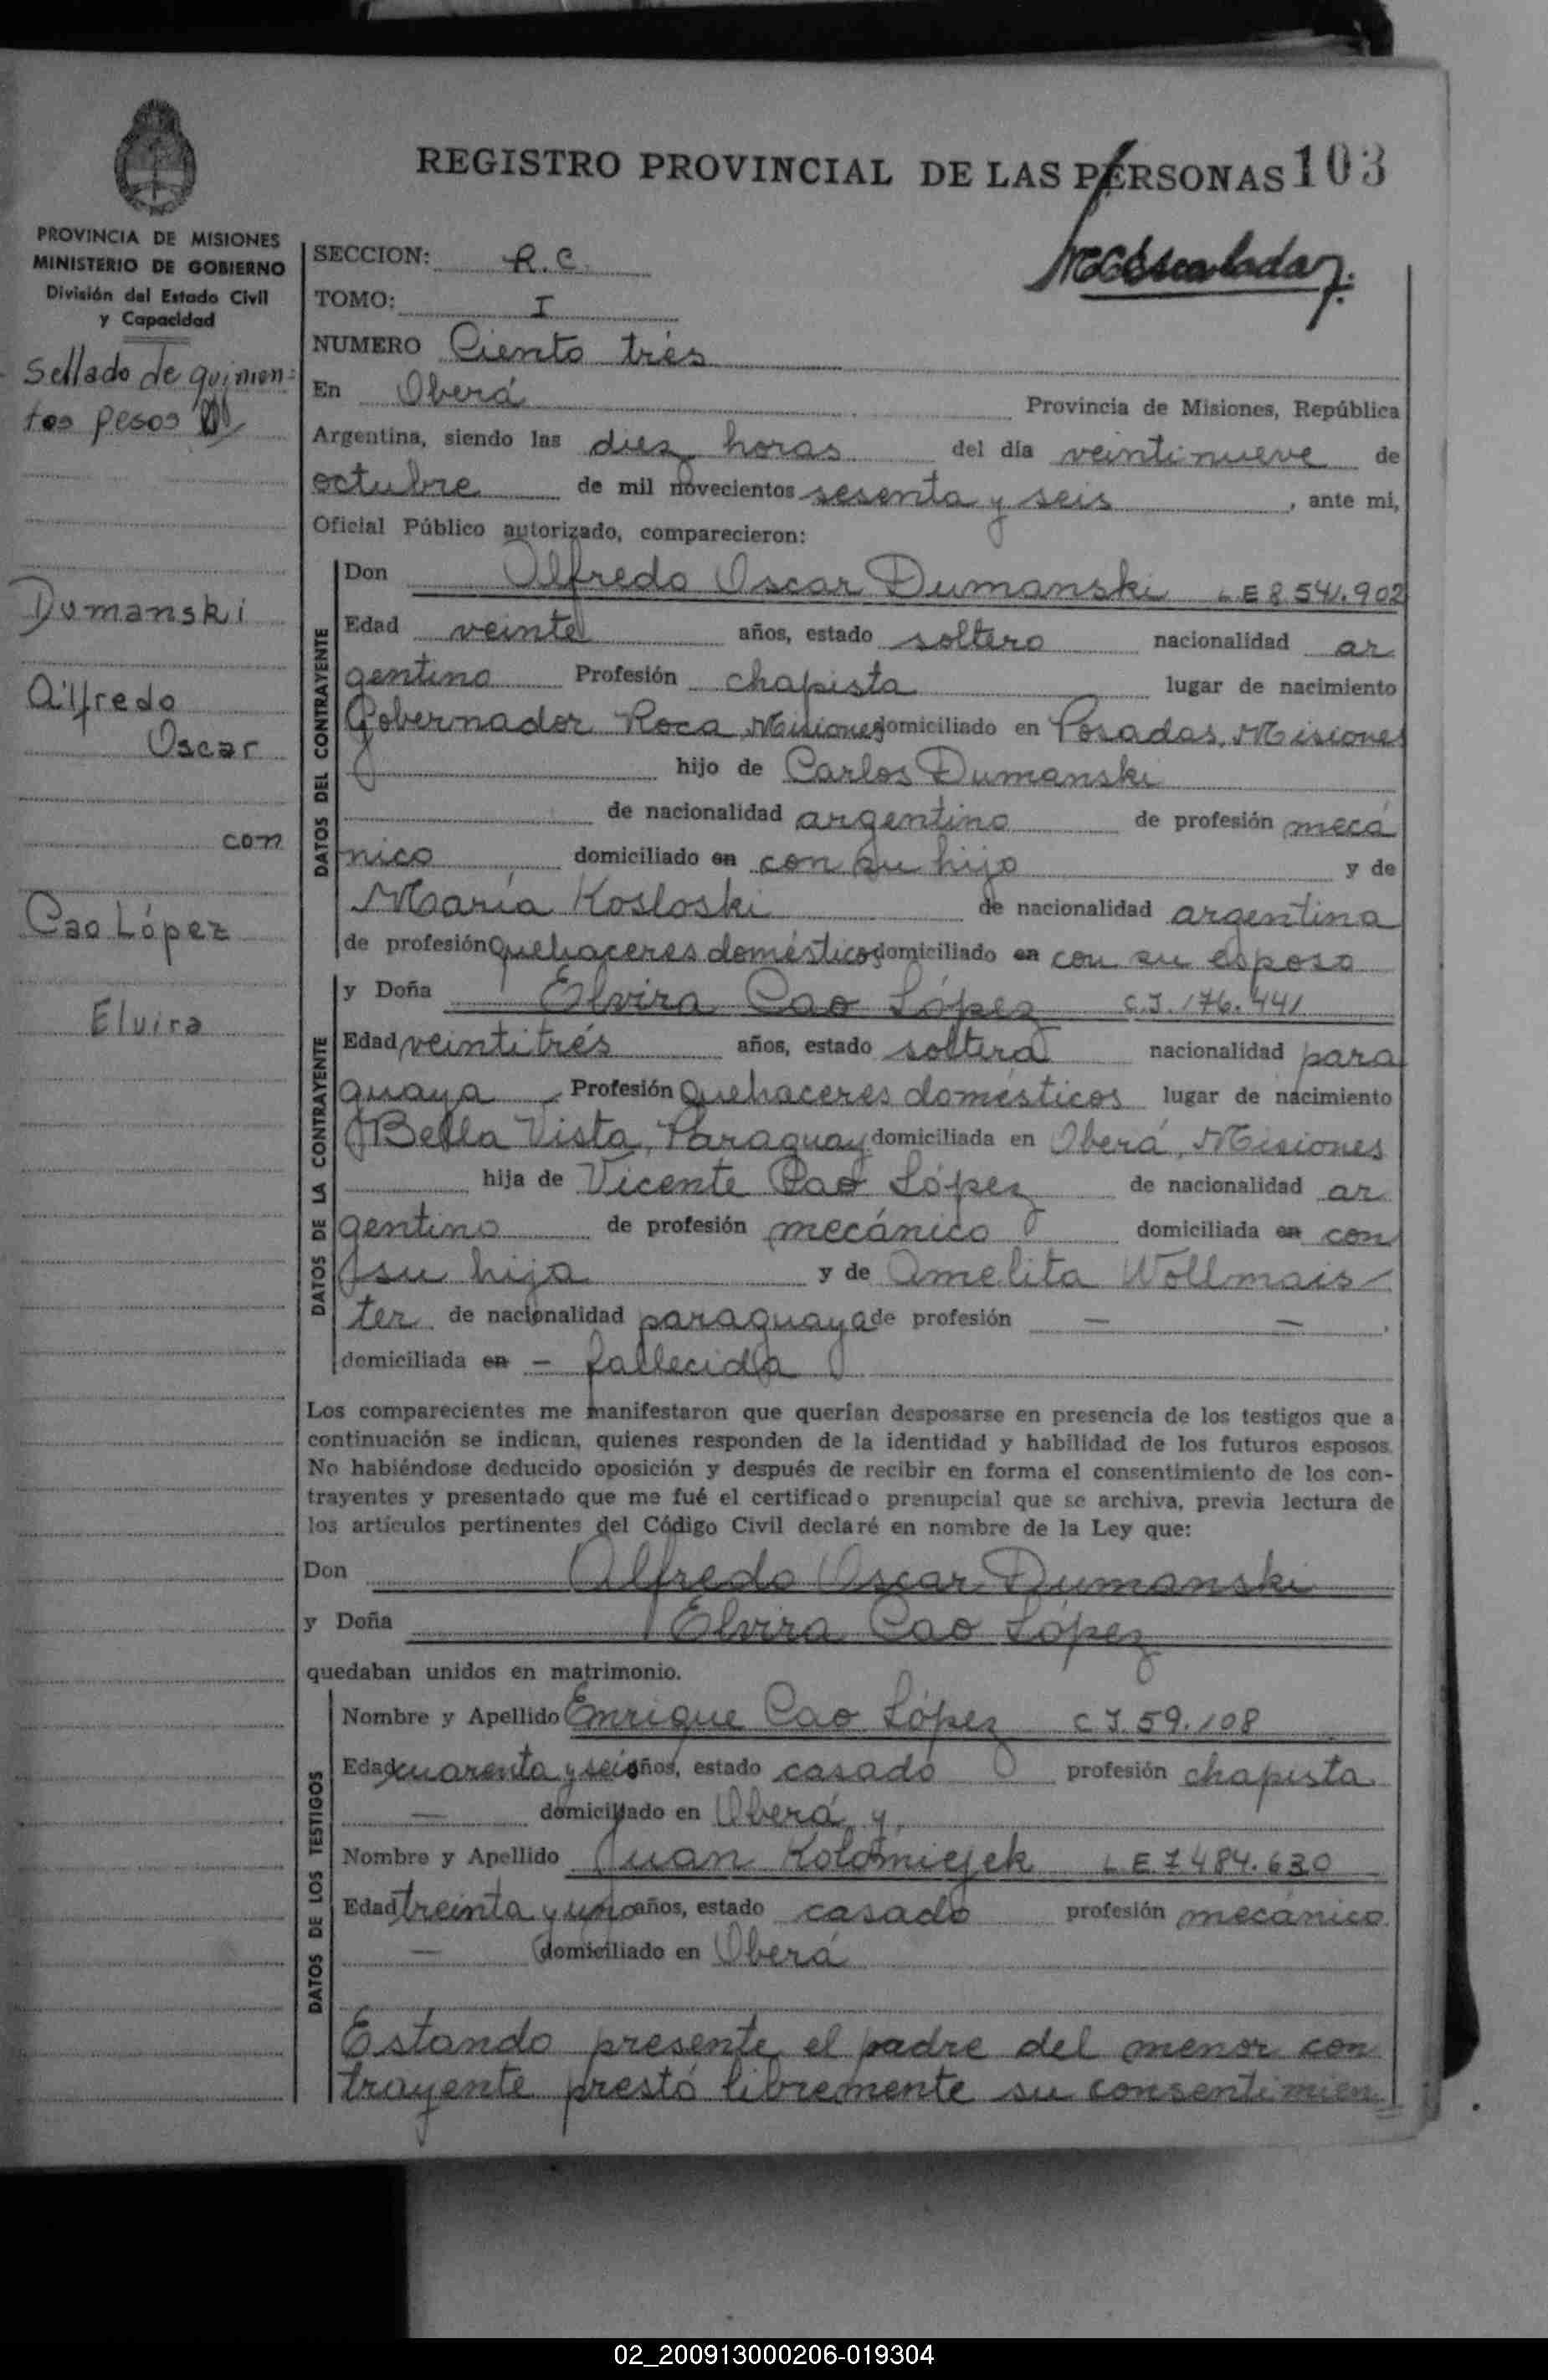 REGISTRO PROVINCIAL DE LAS PERSONAS 103
PROVINCIA DE MISIONES
MINISTERIO DE GOBIERNO
División del Estado Civil
y Capacidad
Sellado de quinien=
tos pesos
Dumanski
Alfredo
Oscar
con
Cao López
Elvira
SECCION: R.C.
TOMO: I
NUMERO Ciento trés
En Oberá Provincia de Misiones, República
Argentina, siendo las diez horas del día veintinueve de
octubre de mil novecientos sesenta y seis, ante mi,
Oficial Público autorizado, comparecieron:
DATOS DEL CONTRAYENTE
Don Alfredo Oscar Dumanski L E 8 541.902
Edad veinte años, estado soltero nacionalidad ar
gentino Profesión chapista lugar de nacimiento
Gobernador Roca, Misiones domiciliado en Posadas, Misiones
hijo de Carlos Dumanski
de nacionalidad argentino de profesión mecá
nico domiciliado en con su hijo y de
María Kosloski de nacionalidad argentina
de profesión quehaceres domésticos domiciliado en con su esposo
DATOS DE LA CONTRAYENTE
y Doña Elvira Cao López C.I. 176.441
Edad veintitrés años, estado soltera nacionalidad para
guaya Profesión quehaceres domésticos lugar de nacimiento
Bella Vista, Paraguay domiciliada en Oberá, Misiones
hija de Vicente Cao López de nacionalidad ar
gentino de profesión mecánico domiciliada en con
su hija y de Amelita Wollmais-
ter de nacionalidad paraguaya de profesión — —
domiciliada en - fallecida
Los comparecientes me manifestaron que querían desposarse en presencia de los testigos que a
continuación se indican, quienes responden de la identidad y habilidad de los futuros esposos.
No habiéndose deducido oposición y después de recibir en forma el consentimiento de los con-
trayentes y presentado que me fué el certificado prenupcial que se archiva, previa lectura de
los artículos pertinentes del Código Civil declaré en nombre de la Ley que:
Don Alfredo Oscar Dumanski
y Doña Elvira Cao López
quedaban unidos en matrimonio.
DATOS DE LOS TESTIGOS
Nombre y Apellido Enrique Cao López C I. 59.108
Edad cuarenta y seis años, estado casado profesión chapista
— domiciliado en Oberá y
Nombre y Apellido Juan Kolomiejek L E 7 484.630
Edad treinta y uno años, estado casado profesión mecánico
— domiciliado en Oberá
Estando presente el padre del menor con
trayente prestó libremente su consentimien=
02_200913000206-019304